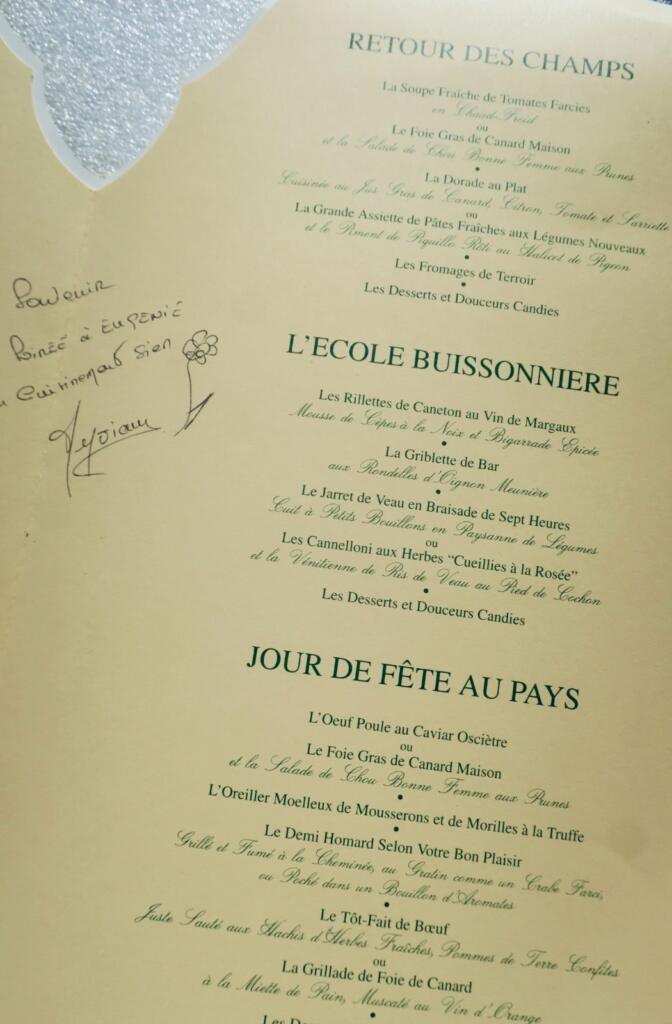 RETOUR DES CHAMPS
La Soupe Fraîche de Tomates Farcies
en Chaud-Froid
ou
Le Foie Gras de Canard Maison
et la Salade de Chou Bonne Femme aux Prunes
La Dorade au Plat
Cuisinée au Jus Gras de Canard, Citron, Tomate et Sarriette
ou
La Grande Assiette de Pâtes Fraîches aux Légumes Nouveaux
et le Piment de Piquillo Rôti au Halicot de Pigeon
Les Fromages de Terroir
Les Desserts et Douceurs Candies
Souvenir
Soirée à EUGENIE
Cuisinement Sien
L'ECOLE BUISSONNIERE
Les Rillettes de Caneton au Vin de Margaux
Mousse de Cèpes à la Noix et Bigarrade Epicée
La Griblette de Bar
aux Rondelles d'Oignon Meunière
Le Jarret de Veau en Braisade de Sept Heures
Cuit à Petits Bouillons en Paysanne de Légumes
ou
Les Cannelloni aux Herbes "Cueillies à la Rosée"
et la Vénitienne de Ris de Veau au Pied de Cochon
Les Desserts et Douceurs Candies
JOUR DE FÊTE AU PAYS
L'Oeuf Poule au Caviar Osciètre
ou
Le Foie Gras de Canard Maison
et la Salade de Chou Bonne Femme aux Prunes
L'Oreiller Moelleux de Mousserons et de Morilles à la Truffe
Le Demi Homard Selon Votre Bon Plaisir
Grillé et Fumé à la Cheminée, au Gratin comme un Crabe Farci,
ou Poché dans un Bouillon d'Aromates
Le Tôt-Fait de Bœuf
Juste Sauté aux Hachis d'Herbes Fraîches, Pommes de Terre Confites
ou
La Grillade de Foie de Canard
à la Miette de Pain, Muscaté au Vin d'Orange